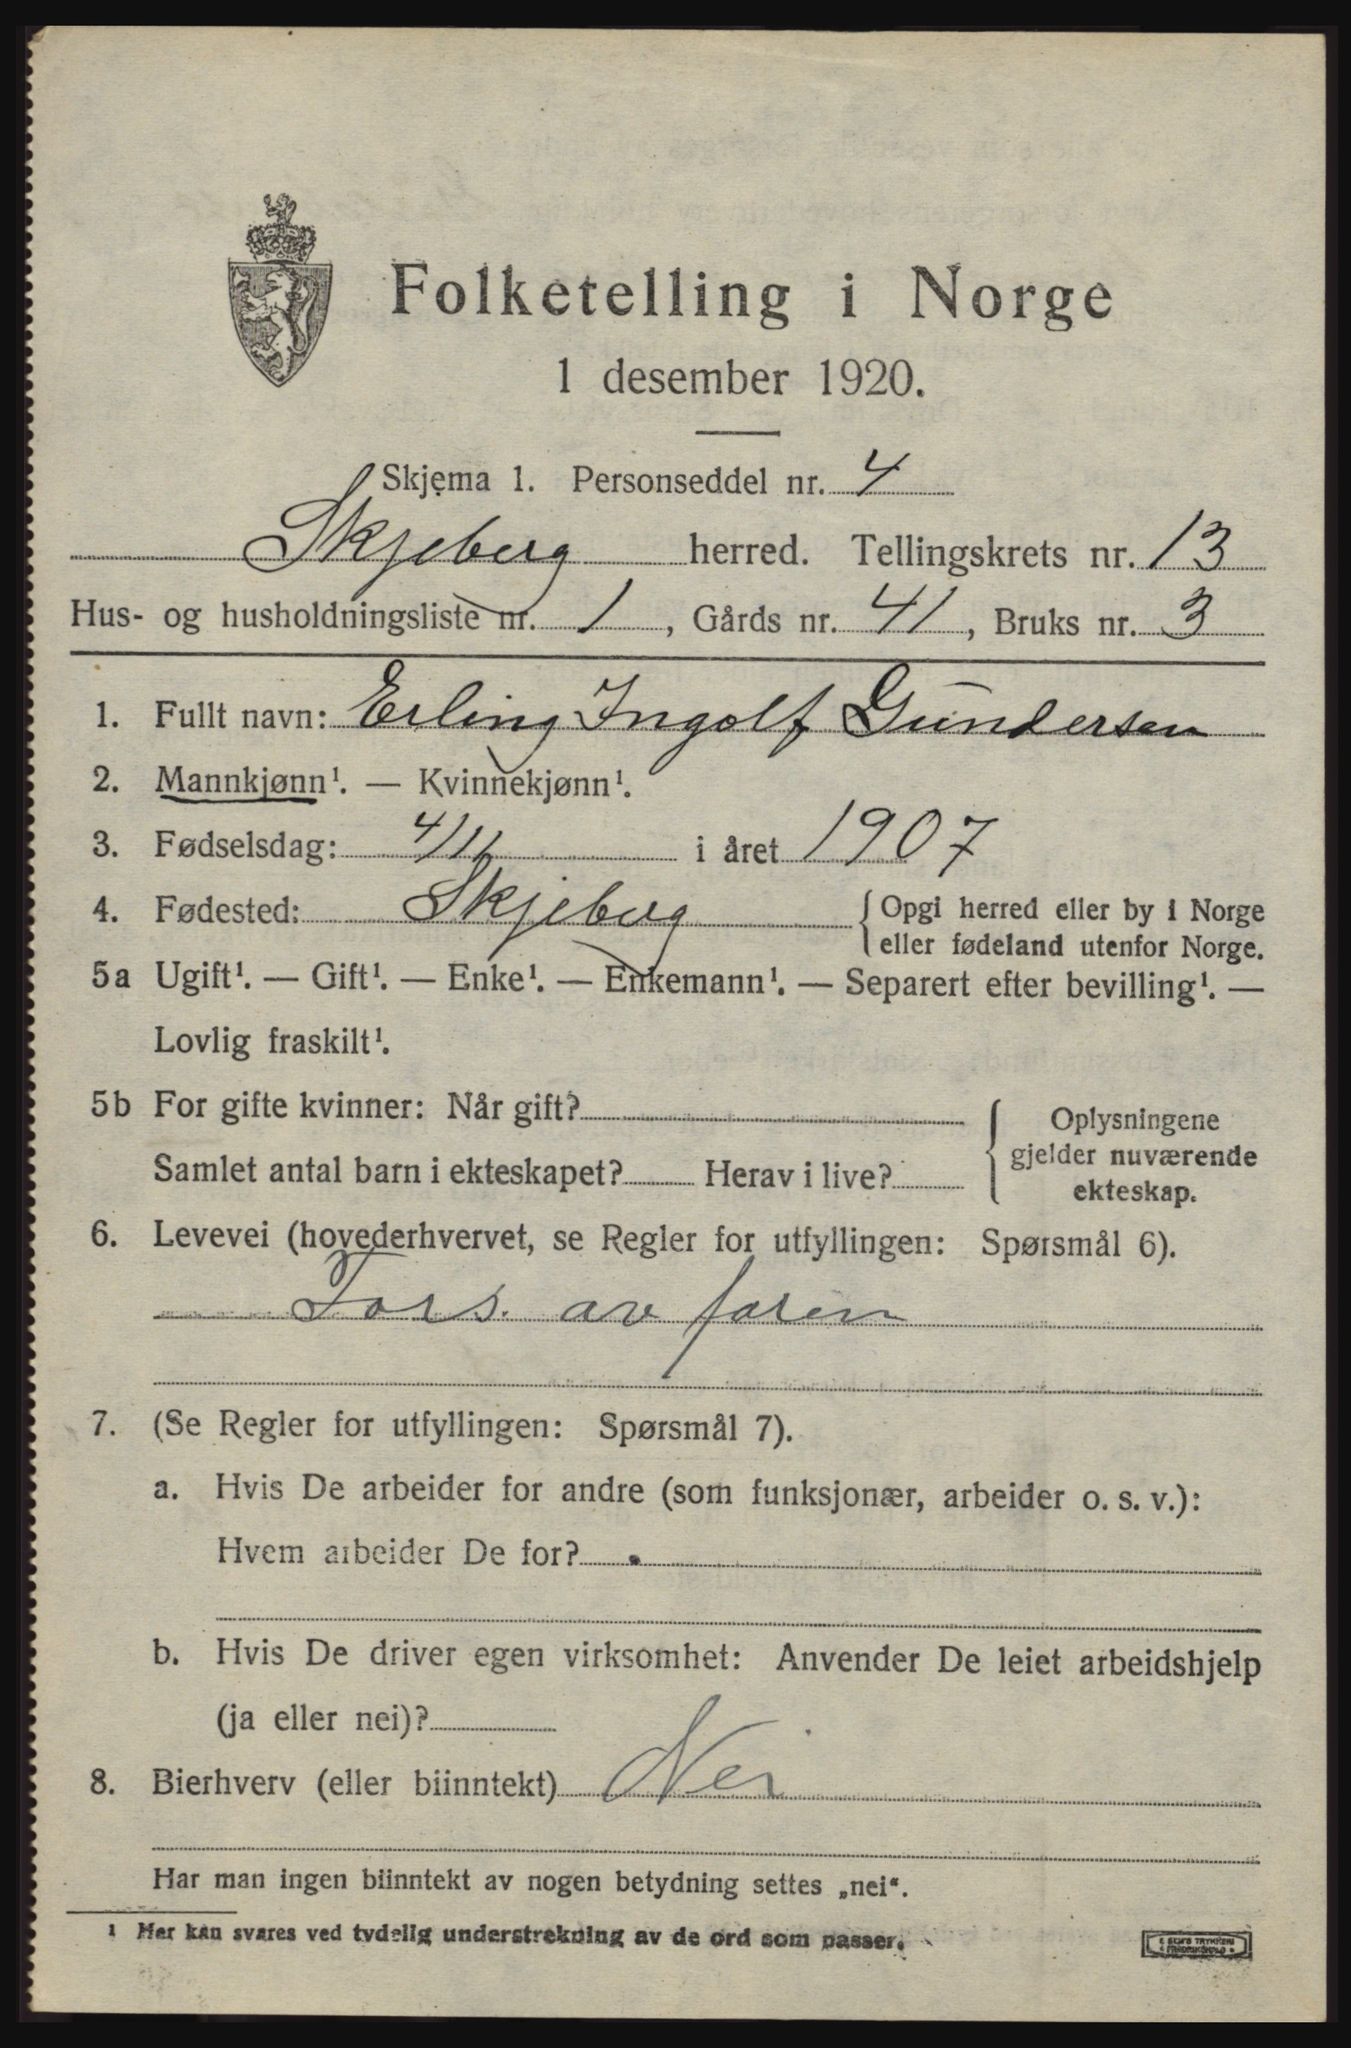 Folketelling i Norge
1 desember 1920.
Skjema 1. Personseddel nr. 4
Skjeberg herred. Tellingskrets nr. 13
Hus- og husholdningsliste nr. 1, Gårds nr. 41, Bruks nr. 3
1. Fullt navn: Erling Ingolf Gundersen
2. Mannkjønn¹. — Kvinnekjønn¹.
3. Fødselsdag: 4/11 i året 1907
4. Fødested: Skjeberg { Opgi herred eller by i Norge
eller fødeland utenfor Norge.
5a Ugift¹. — Gift¹. — Enke¹. — Enkemann¹. — Separert efter bevilling¹. —
Lovlig fraskilt¹.
5b For gifte kvinner: Når gift?
Samlet antal barn i ekteskapet? Herav i live?
{ Oplysningene
gjelder nuværende
ekteskap.
6. Levevei (hovederhvervet, se Regler for utfyllingen: Spørsmål 6).
Fors. av faren
7. (Se Regler for utfyllingen: Spørsmål 7).
a. Hvis De arbeider for andre (som funksjonær, arbeider o. s. v.):
Hvem arbeider De for?
b. Hvis De driver egen virksomhet: Anvender De leiet arbeidshjelp
(ja eller nei)?
8. Bierhverv (eller biinntekt) Nei
Har man ingen biinntekt av nogen betydning settes „nei“.
¹ Her kan svares ved tydelig understrekning av de ord som passer.